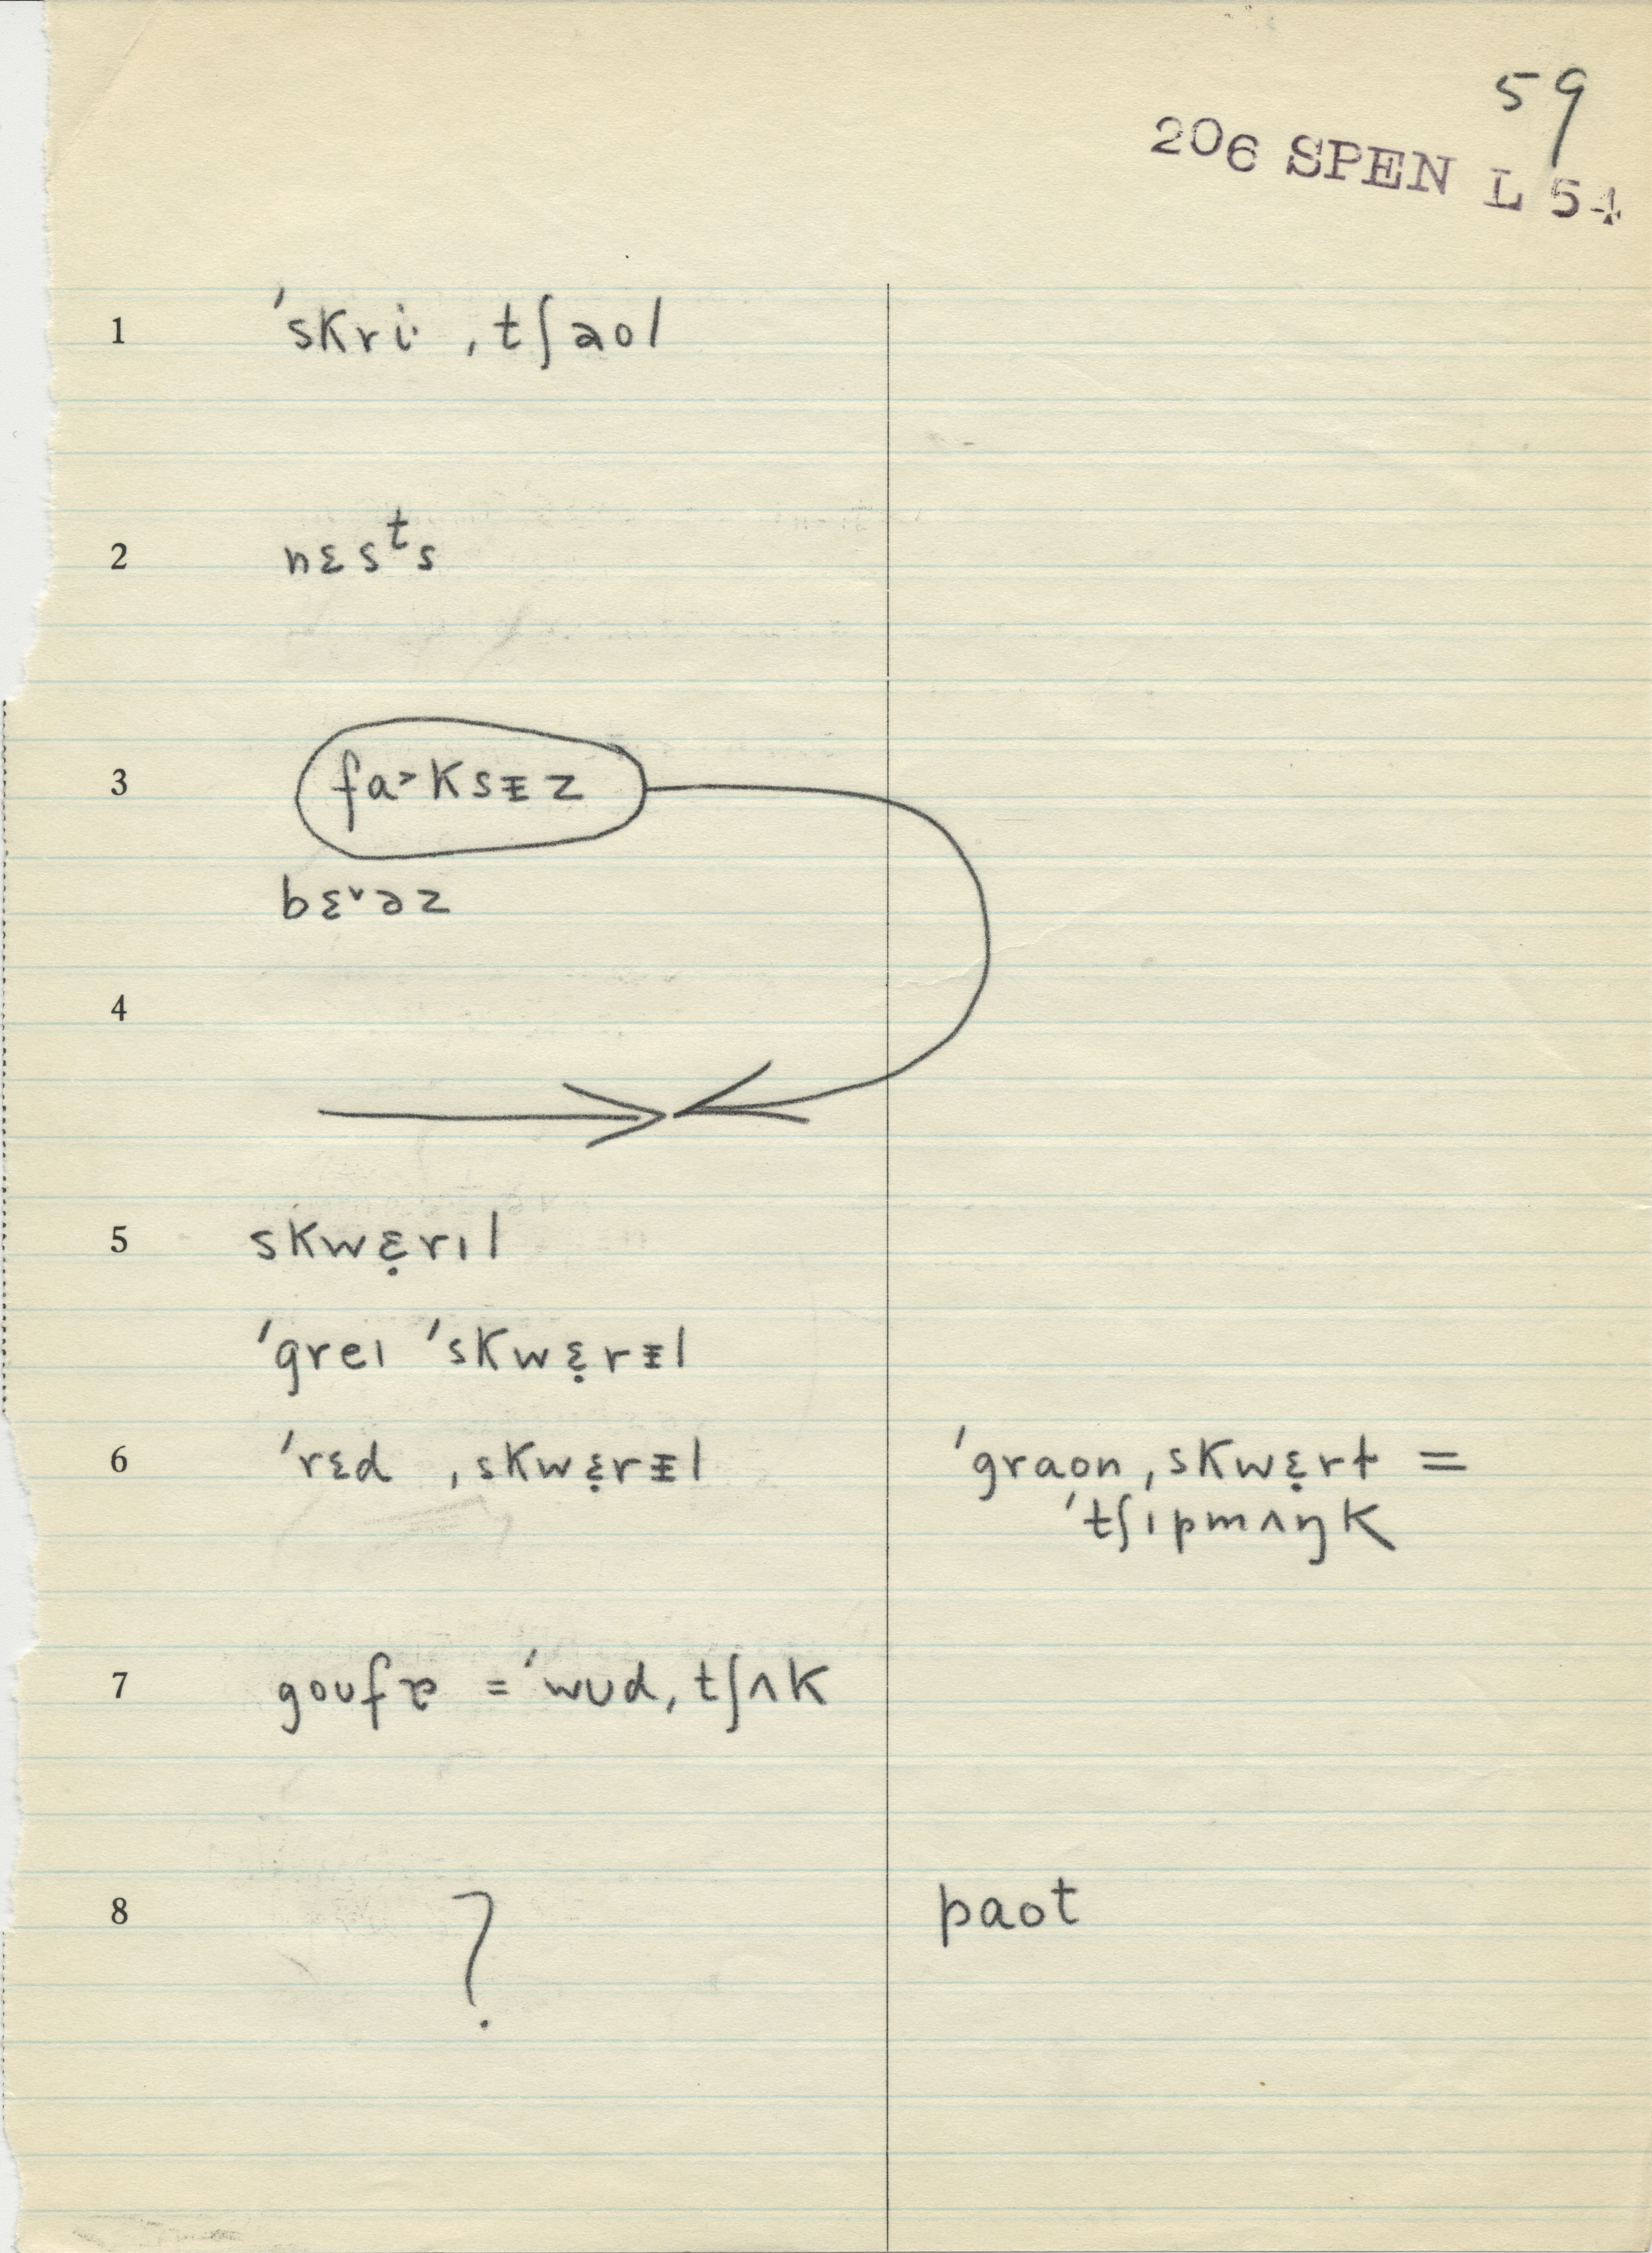 59
206 SPEN L 54
1 ˈskri· ˌtʃaol
2 nɛsᵗs
3 fa˃ksᵻz
bɛ˅əz
4
5 skwɛ̣rıl
ˈgreı ˈskwɛ̣rᵻl
6 ˈrɛd ˌskwɛ̣rᵻl ˈgraon ˌskwɛ̣rɫ =
ˈtʃıpmʌŋk
7 goufɚ = ˈwʊd ˌtʃʌk
8 ? paot